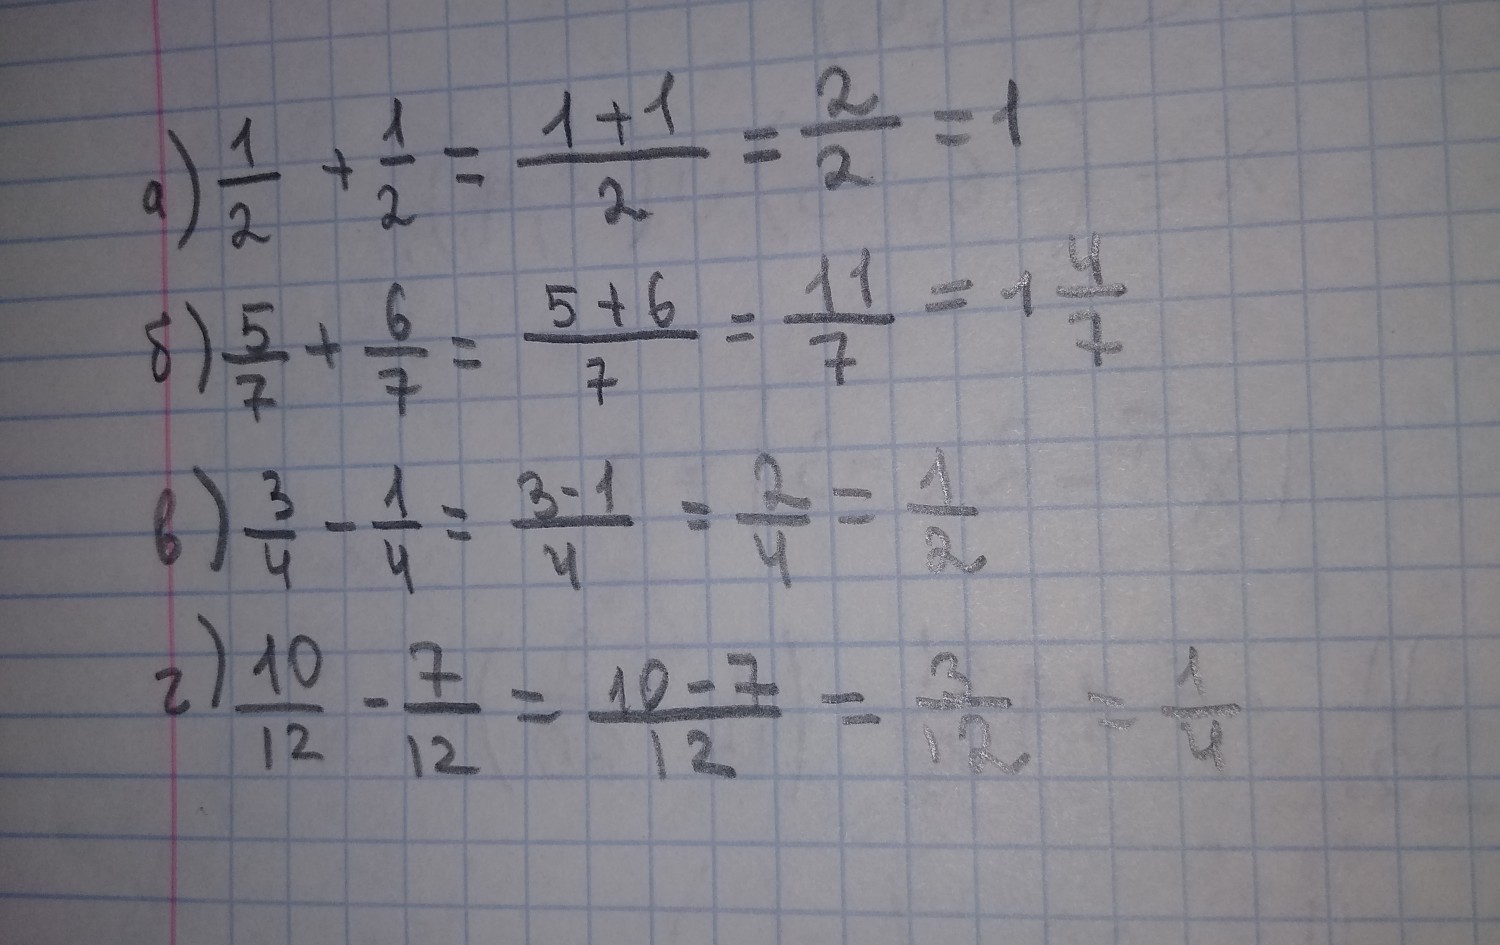 а) 1/2 + 1/2 = (1+1)/2 = 2/2 = 1
б) 5/7 + 6/7 = (5+6)/7 = 11/7 = 1 4/7
в) 3/4 - 1/4 = (3-1)/4 = 2/4 = 1/2
г) 10/12 - 7/12 = (10-7)/12 = 3/12 = 1/4